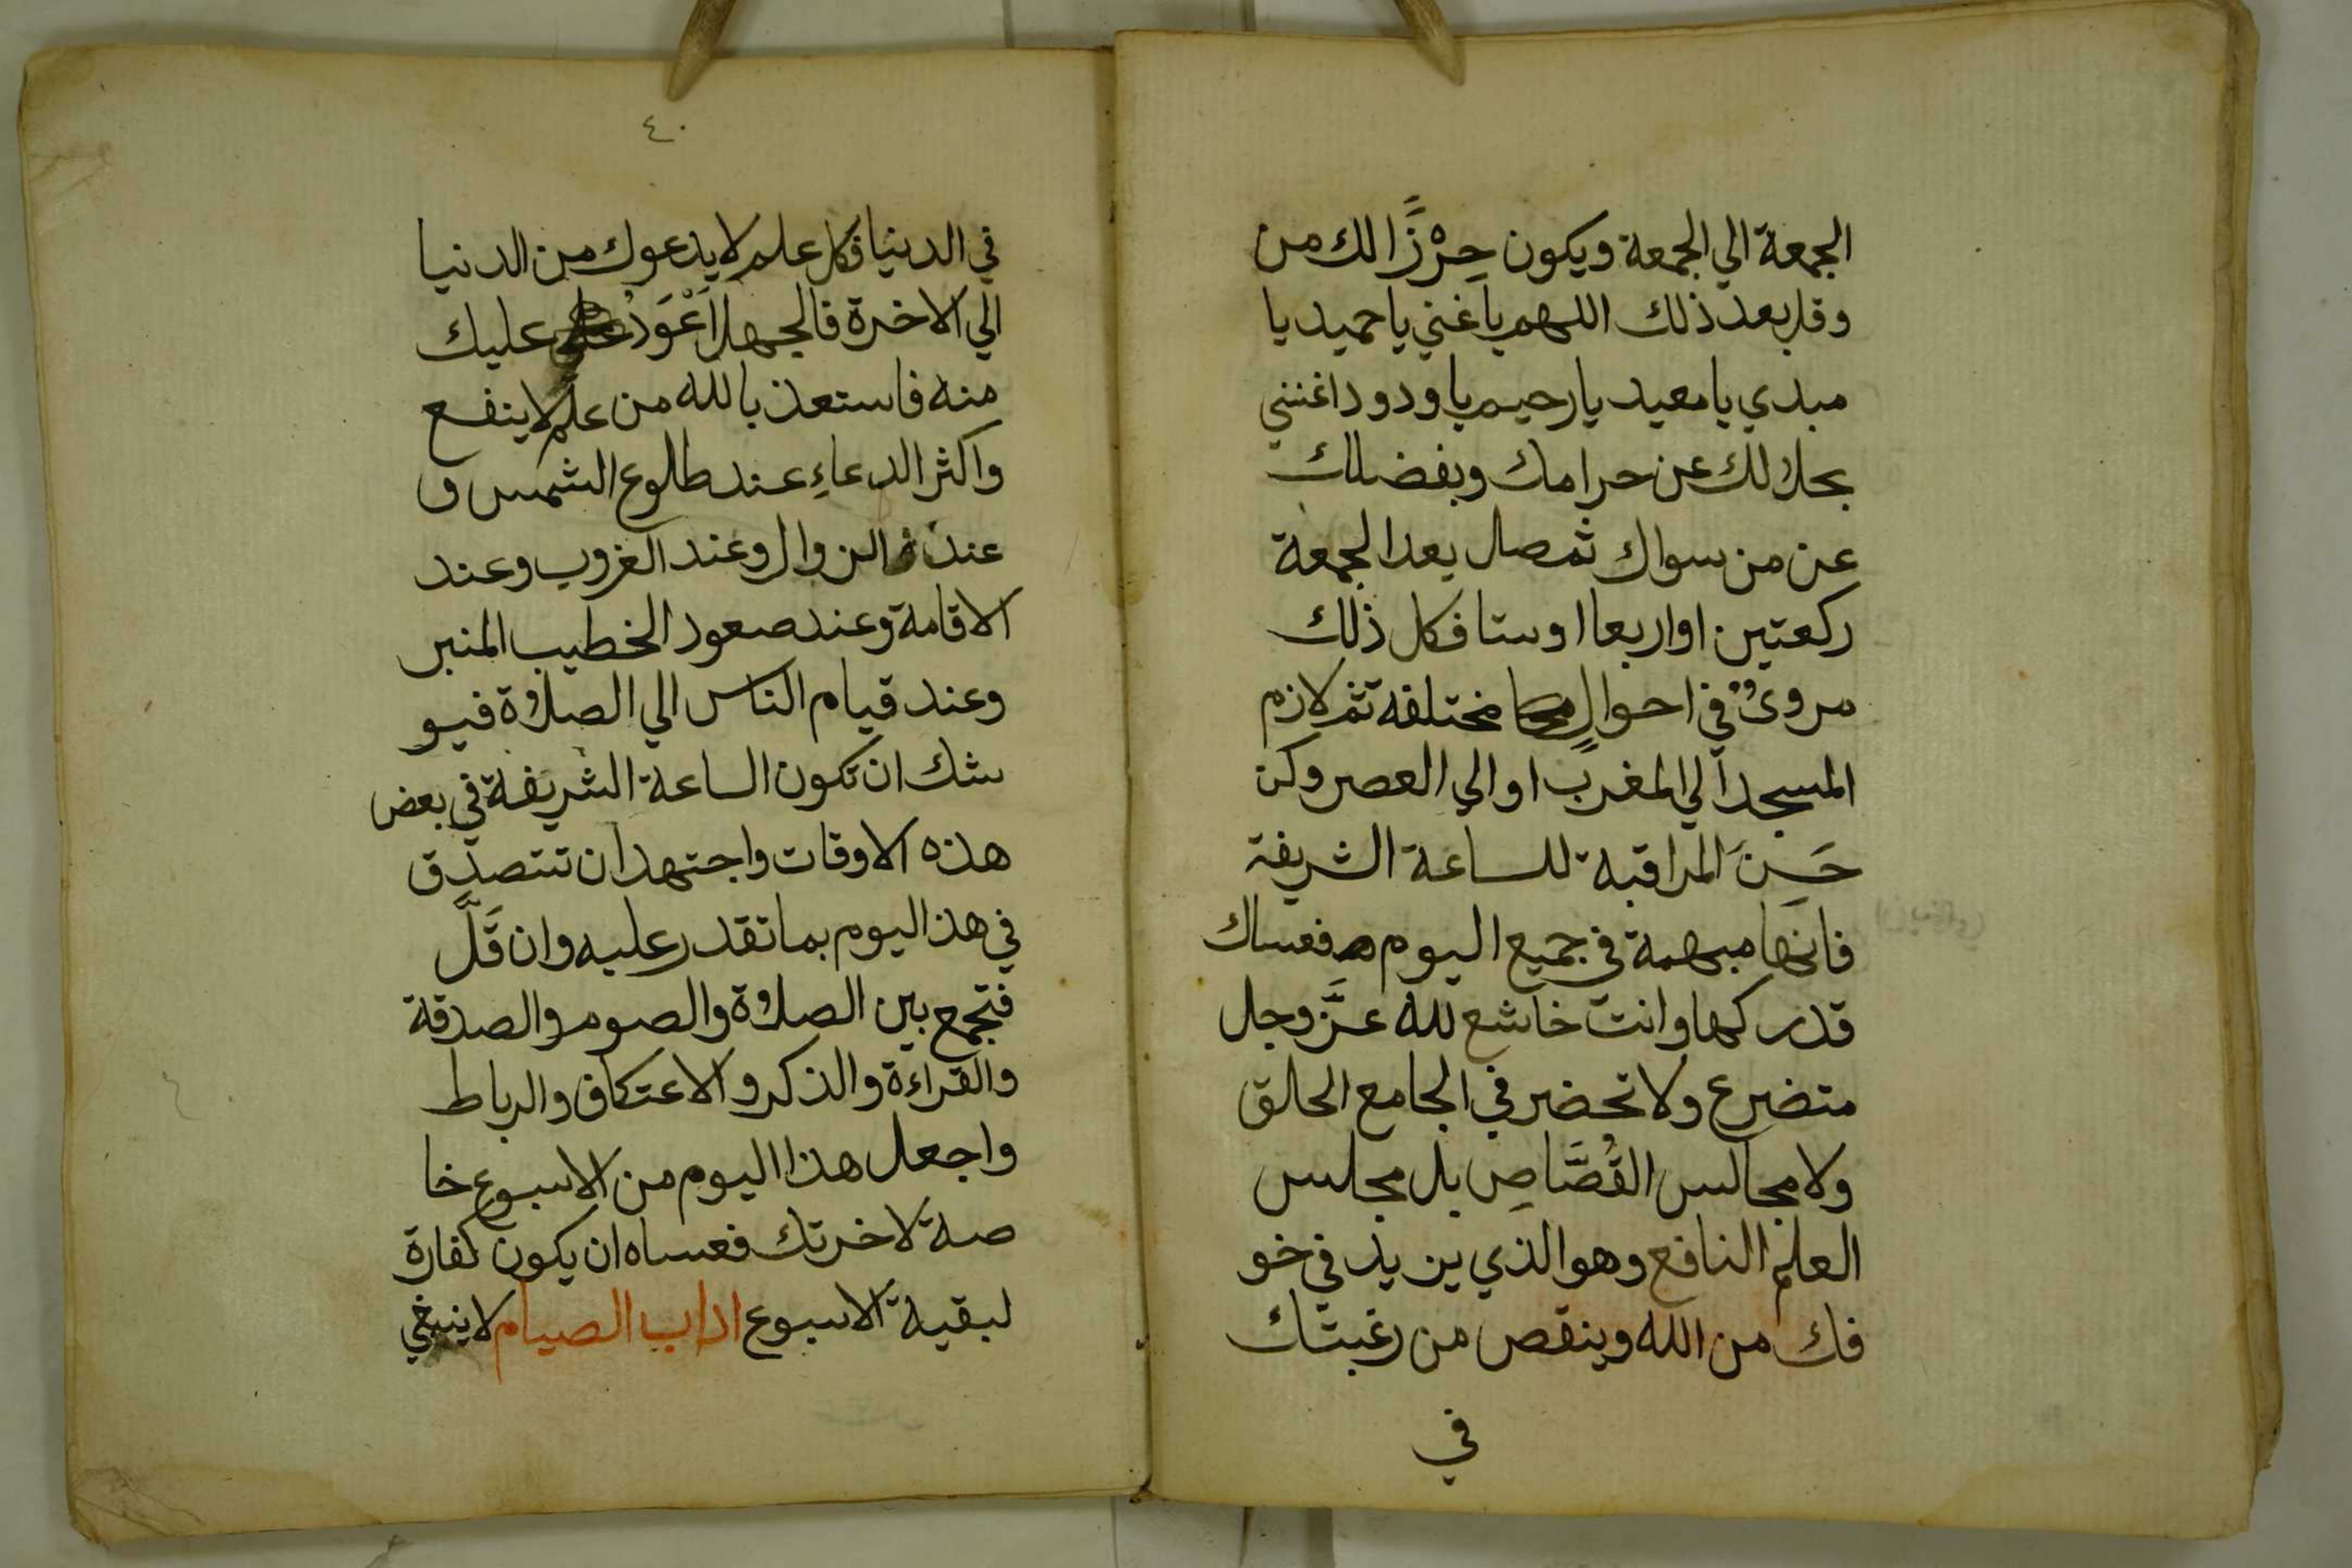 الجمعة الي الجمعة ويكون حِرْزًا لك من
وقل بعد ذلك اللهم يا غني يا حميد يا
مبدي يا معيد يا رحيم يا ودود اغنني
بحلالك عن حرامك وبفضلك
عن من سواك ثم صل بعد الجمعة
ركعتين او اربعا او ستا فكل ذلك
مروىٌ في احوالٍ مختلفة ثم لازم
المسجد الي المغرب او الي العصر وكن
حَسِنَ المراقبة للساعة الشريفة
فانها مبهمة في جميع اليوم فعساك
تدركها وانت خاشع لله عزَّ وجل
متضرع ولا تحضر في الجامع الحلق
ولا مجالس القُصَّاصِ بل مجلس
العلم النافع وهو الذي يزيد في خو
فك من الله وينقص من رغبتك
في
٤٠
في الدنيا فكل علم لا يدعوك من الدنيا
الي الاخرة فالجهل اَعْوَدُ عليك
منه فاستعذ بالله من علم لا ينفع
واكثر الدعاءِ عند طلوع الشمس و
عند الزوال وعند الغروب وعند
الاقامة وعند صعود الخطيب المنبر
وعند قيام الناس الي الصلاة فيو
شك ان تكون الساعة الشريفة في بعض
هذه الاوقات واجتهد ان تتصدق
في هذا اليوم بما تقدر عليه وان قَلَّ
فتجمع بين الصلاة والصوم والصدقة
والقراءة والذكر والاعتكاف والرباط
واجعل هذا اليوم من الاسبوع خا
صة لاخرتك فعساه ان يكون كفارة
لبقية الاسبوع اداب الصيام لا ينبغي